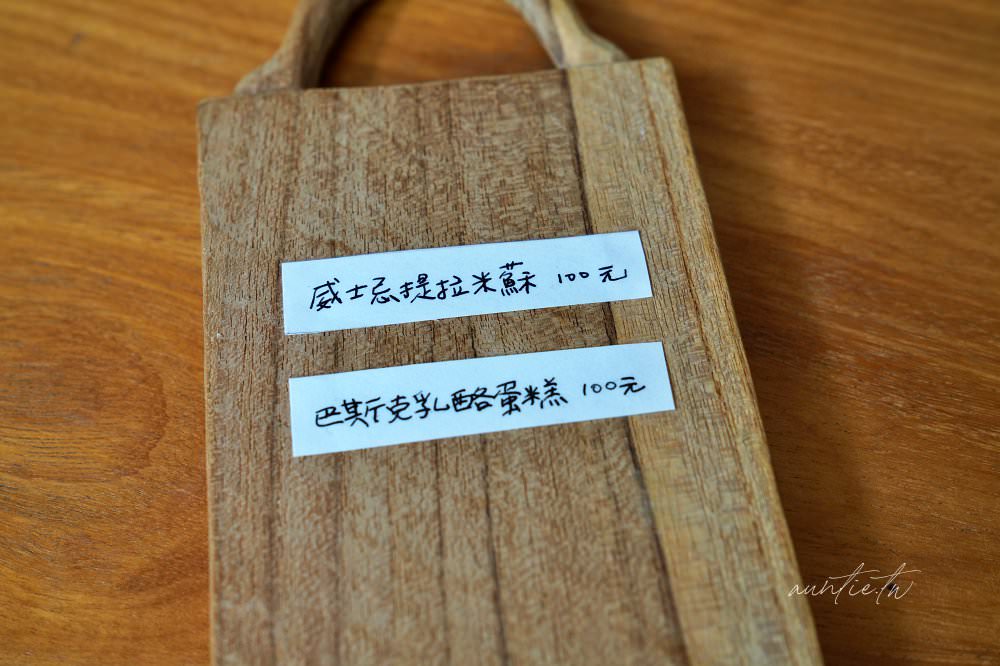 威士忌提拉米蘇 100元
巴斯克乳酪蛋糕 100元
auntie.tw